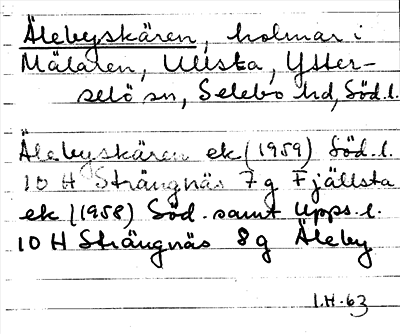 Älebyskären, holmar i
Mälaren, Ullsta, Ytter-
selö sn, Selebo hd, Söd.l.
Älebyskären ek (1959) Söd.l.
10 H Strängnäs 7g Fjällsta
ek (1958) Söd. samt Upps.l.
10 H Strängnäs 8g Äleby
I.H.63